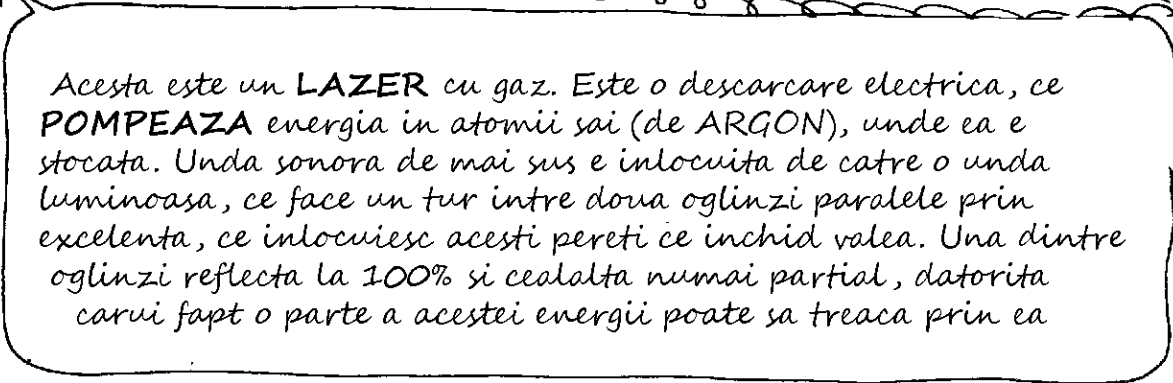 Acesta este un LAZER cu gaz. Este o descarcare electrica, ce
POMPEAZA energia in atomii sai (de ARGON), unde ea e
stocata. Unda sonora de mai sus e inlocuita de catre o unda
luminoasa, ce face un tur intre doua oglinzi paralele prin
excelenta, ce inlocuiesc acesti pereti ce inchid valea. Una dintre
oglinzi reflecta la 100% si cealalta numai partial, datorita
carui fapt o parte a acestei energii poate sa treaca prin ea